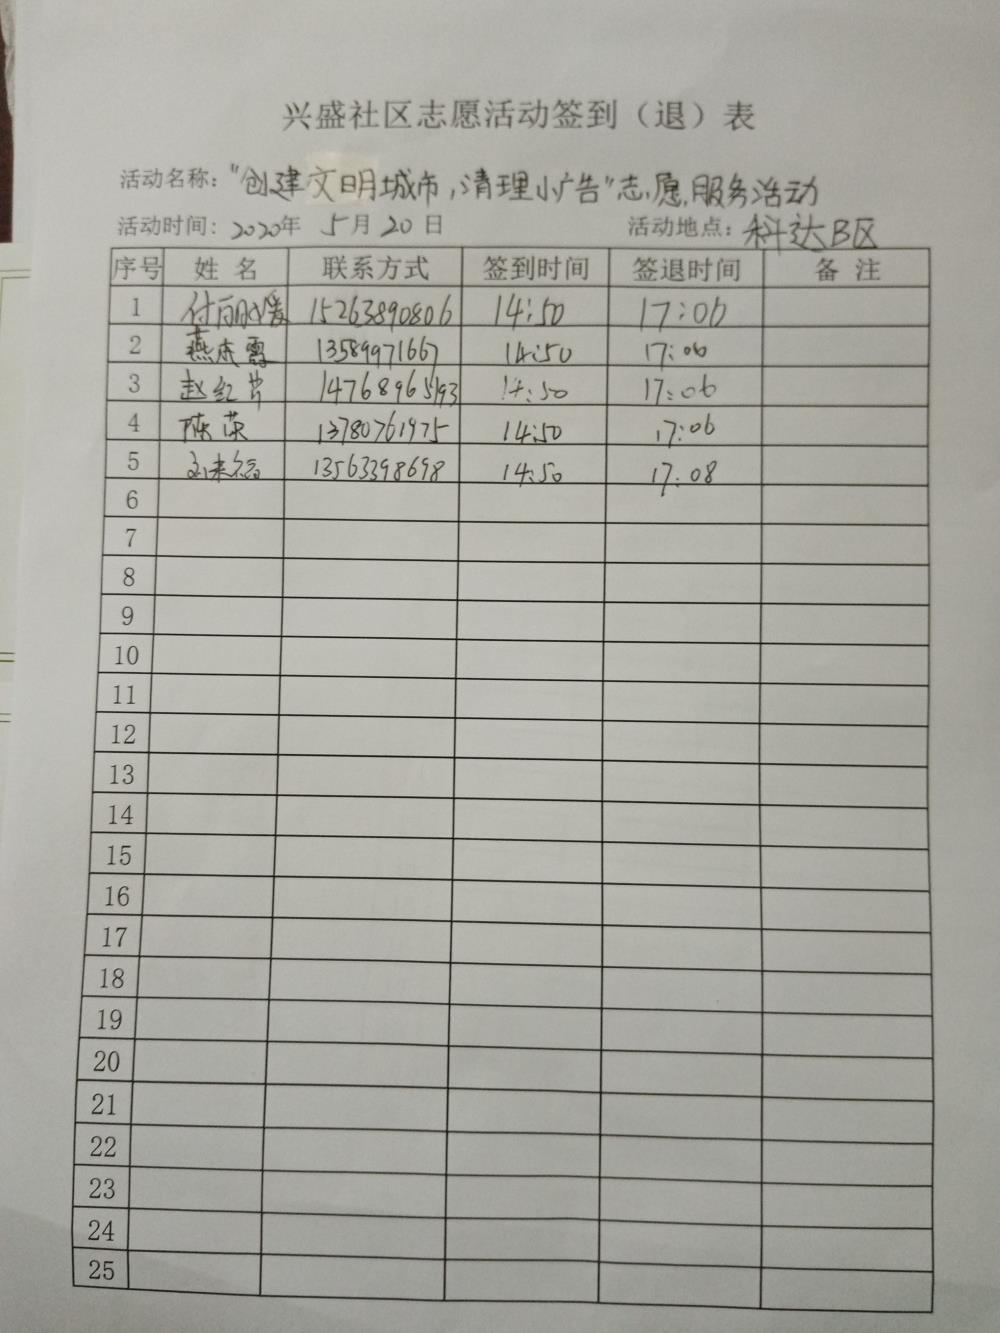 兴盛社区志愿活动签到（退）表
活动名称："创建文明城市，清理小广告"志愿服务活动
活动时间：2020年 5月20日 活动地点：科达B区
序号 姓 名 联系方式 签到时间 签退时间 备 注
1 付丽媛 15263890806 14:50 17:06
2 燕 霞 13589971667 14:50 17:06
3 赵红芹 14768965193 14:50 17:06
4 陈荣 13780761975 14:50 17:06
5 13563398698 14:50 17:08
6
7
8
9
10
11
12
13
14
15
16
17
18
19
20
21
22
23
24
25